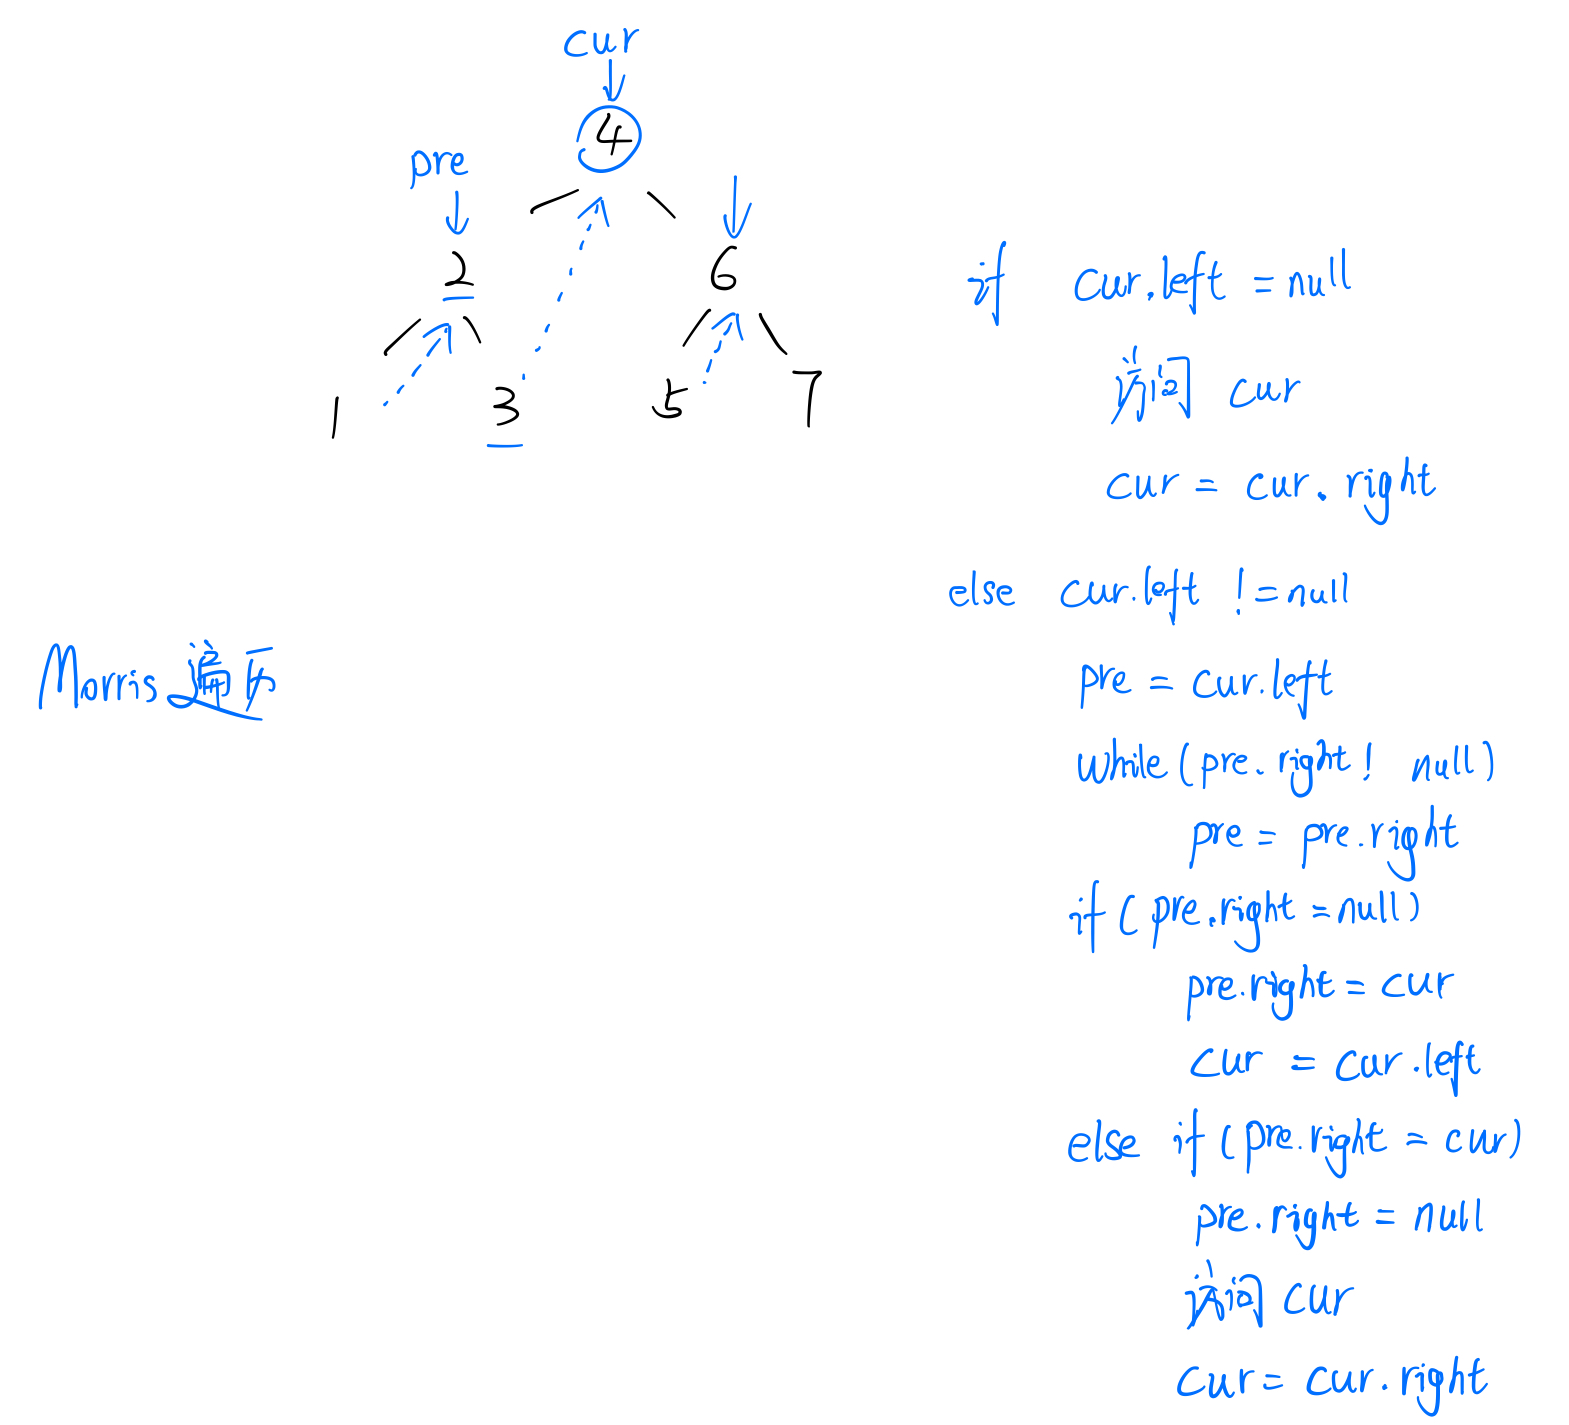 cur
4
pre
2 6
1 3 5 7
if cur.left = null
访问 cur
cur = cur.right
else cur.left != null
Morris 遍历
pre = cur.left
while (pre.right! null)
pre = pre.right
if (pre.right = null)
pre.right = cur
cur = cur.left
else if (pre.right = cur)
pre.right = null
访问 cur
cur = cur.right